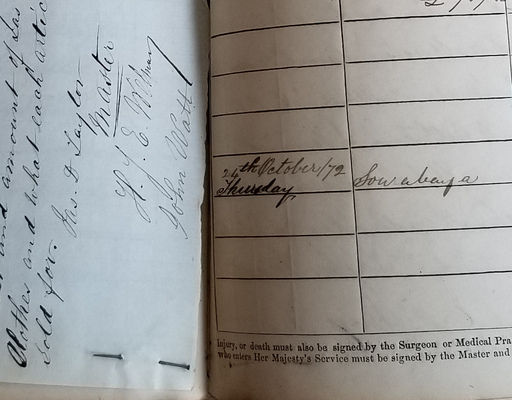 and amount of
Clothes and what each artic
sold for. Jas. D Taylor
Master
H. J. E.
John Watt
24th October/72
Thursday
Sourabaya
Injury, or death must also be signed by the Surgeon or Medical Pra
who enters Her Majesty's Service must be signed by the Master and